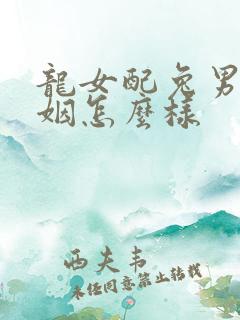 龍女配兔男
姻怎麼樣
西夫韦
未经同意禁止转载